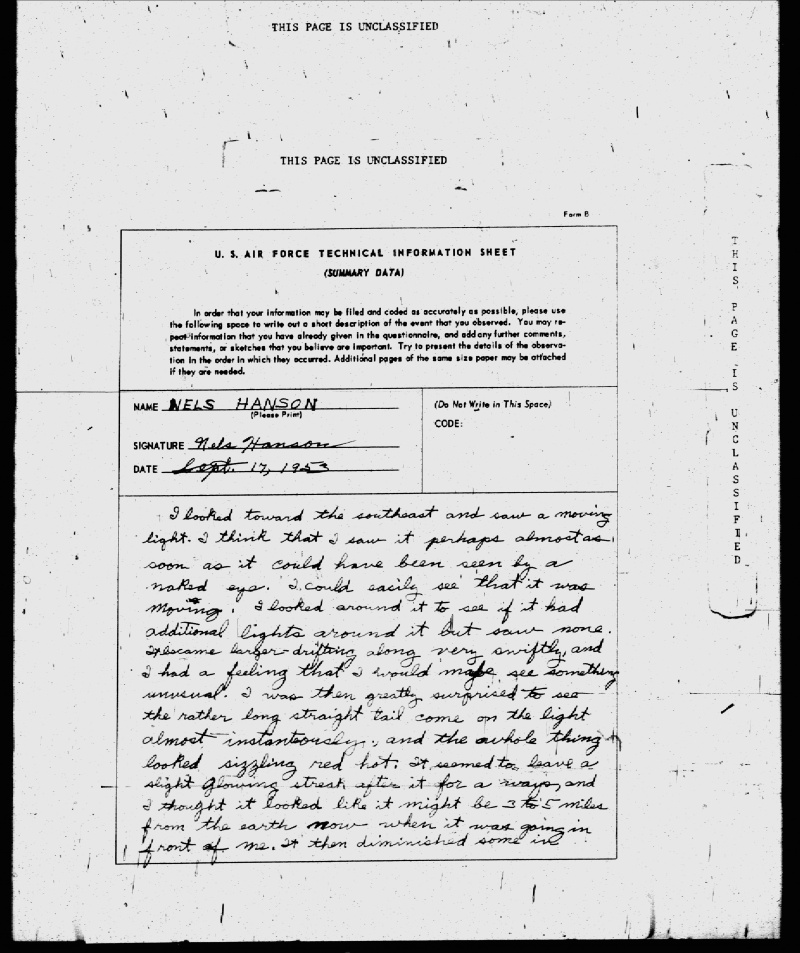 THIS PAGE IS UNCLASSIFIED
THIS PAGE IS UNCLASSIFIED
Form B
U. S. AIR FORCE TECHNICAL INFORMATION SHEET
(SUMMARY DATA)
In order that your information may be filed and coded as accurately as possible, please use
the following space to write out a short description of the event that you observed. You may re-
peat information that you have already given in the questionnaire, and add any further comments,
statements, or sketches that you believe are important. Try to present the details of the observa-
tion in the order in which they occurred. Additional pages of the same size paper may be attached
if they are needed.
NAME NELS HANSON
(Please Print)
SIGNATURE Nels Hanson
DATE Sept. 17, 1953
(Do Not Write in This Space)
CODE:
I looked toward the southeast and saw a moving
light. I think that I saw it perhaps almost as
soon as it could have been seen by a
naked eye. I could easily see that it was
moving. I looked around it to see if it had
additional lights around it but saw none.
It became larger - drifting along very swiftly, and
I had a feeling that I would see something
unusual. I was then greatly surprised to see
the rather long straight tail come on the light
almost instanteously, and the whole thing
looked sizzling red hot. It seemed to leave a
slight glowing streak after it for a ways, and
I thought it looked like it might be 3 to 5 miles
from the earth now when it was going in
front of me. It then diminished some in
THIS PAGE IS UNCLASSIFIED